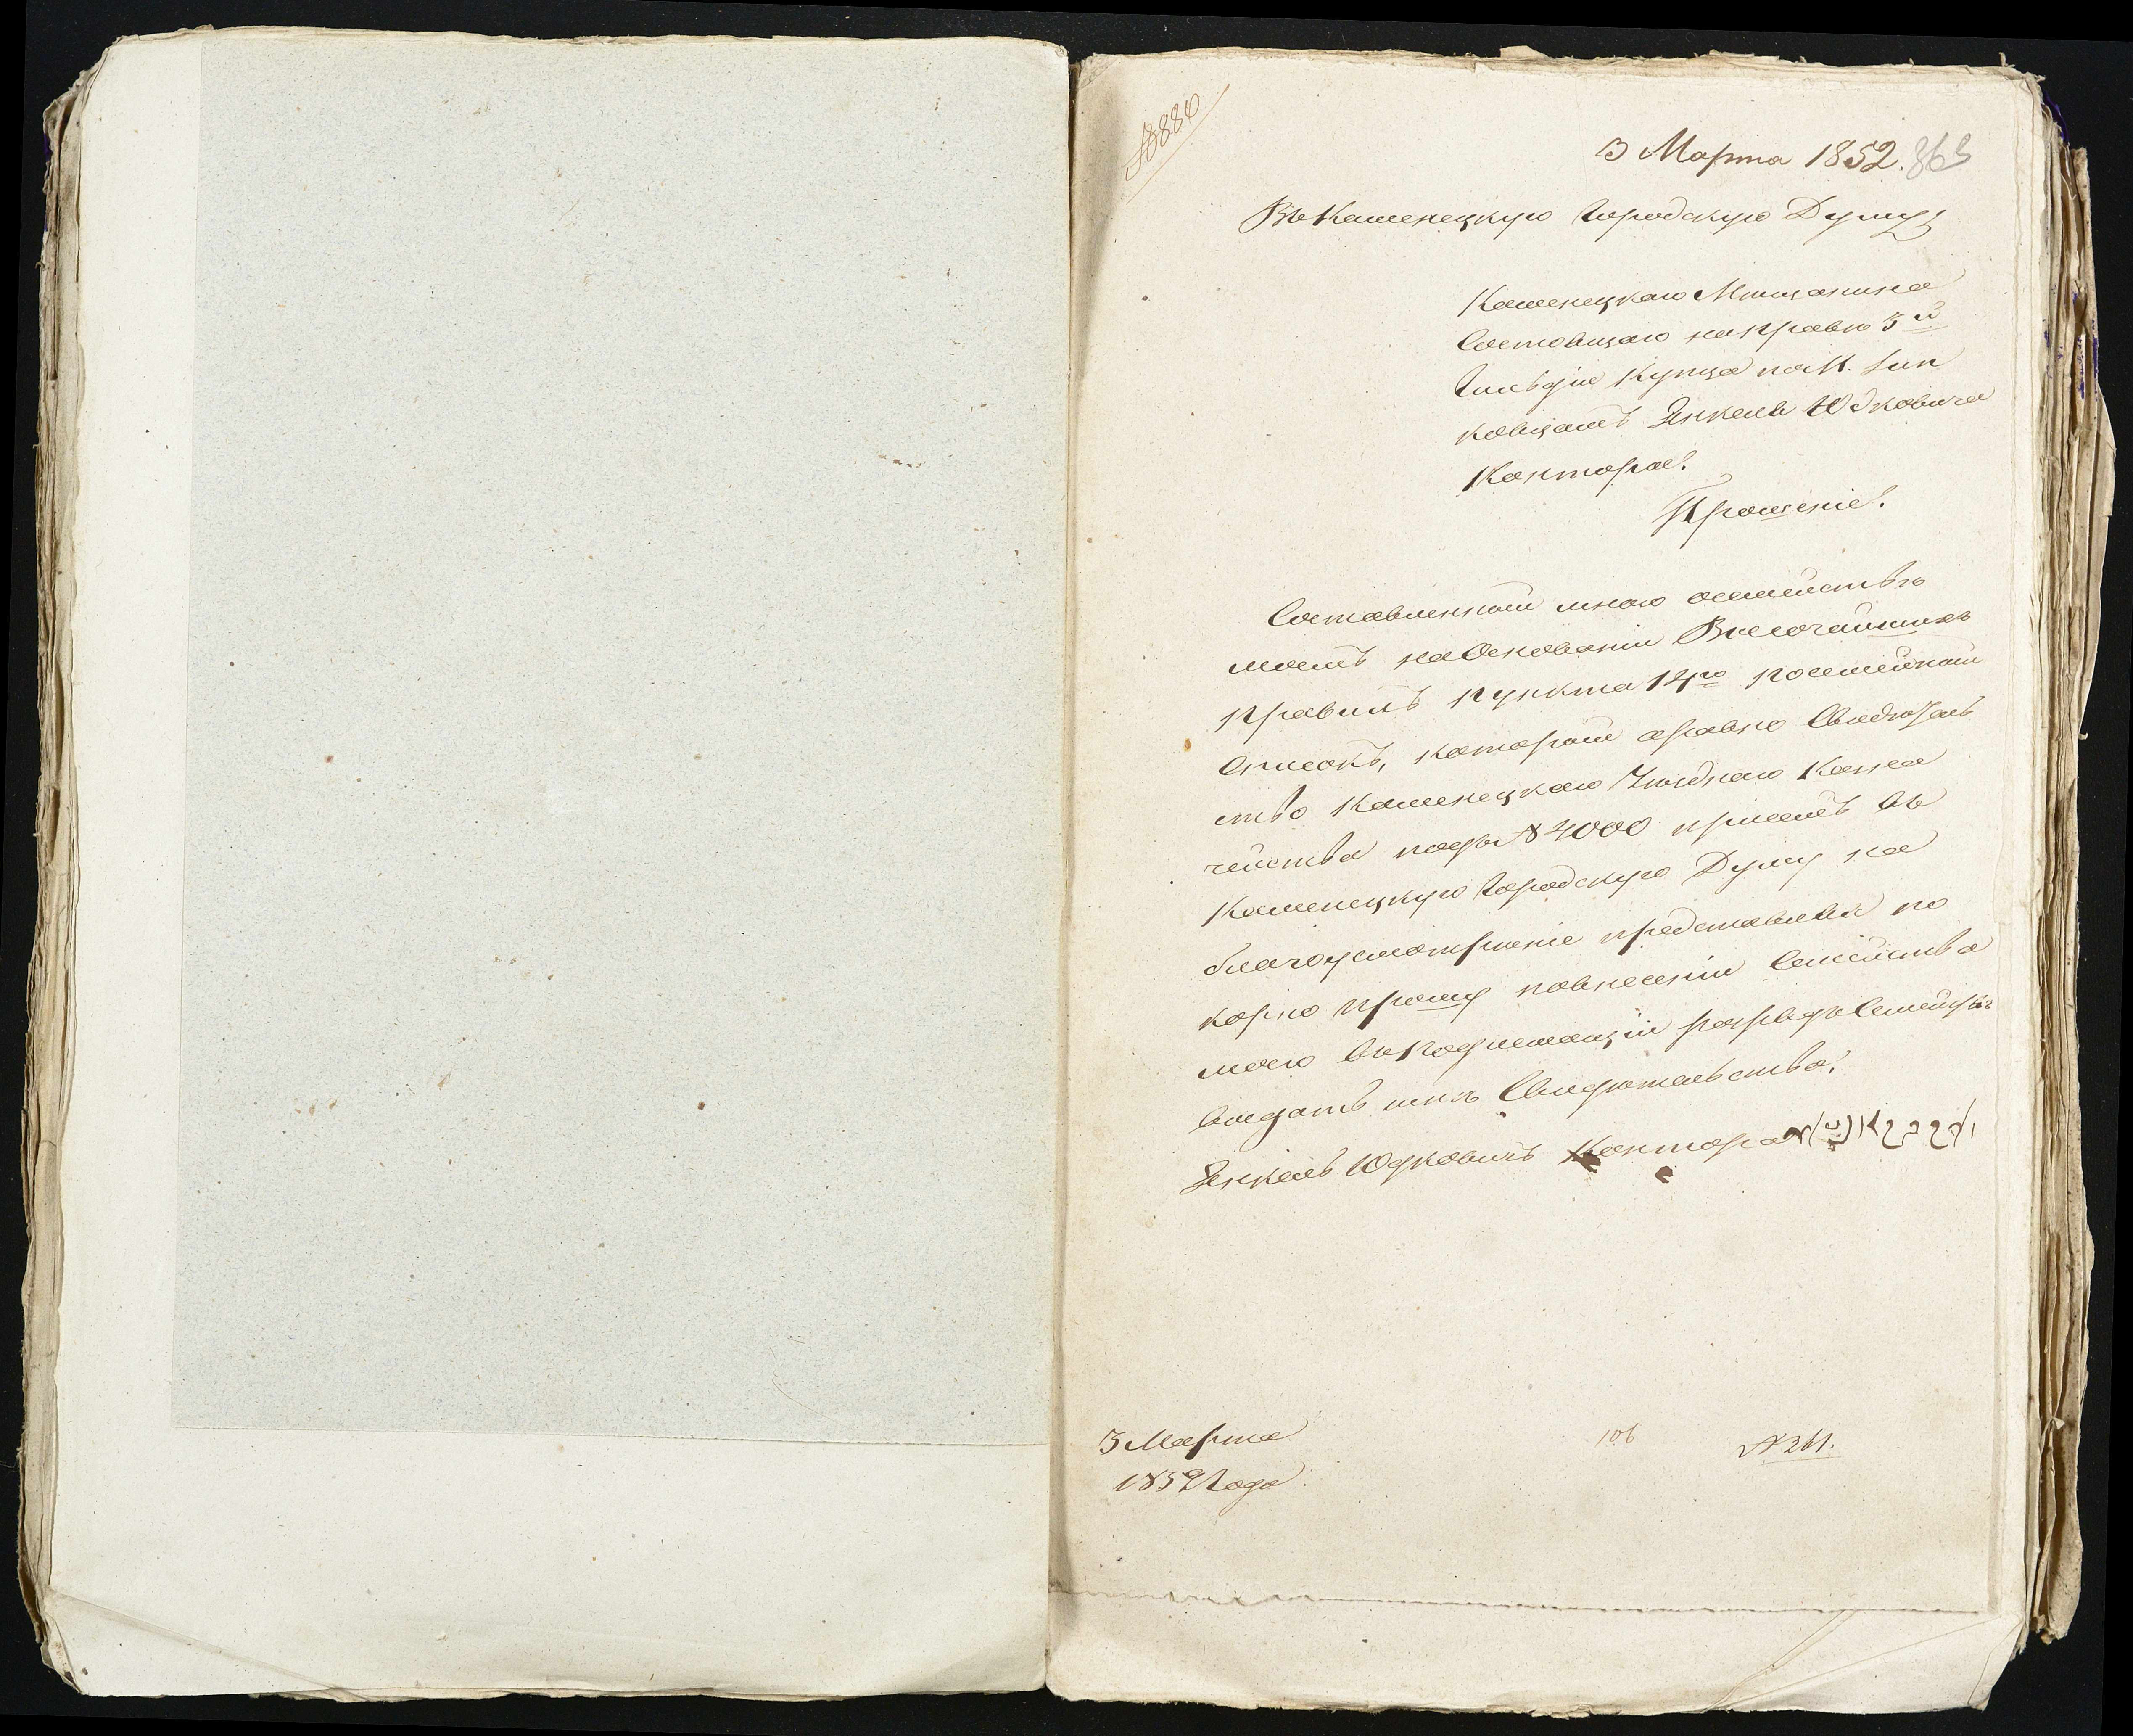 №880
3 Марта 1852.
Въ Каменецкую Городскую Думу
Каменецкаго Мещанина
Состоящаго направѣ 3й
Гильдіи Купца
Янкеля Юдковича
Кантора.
Прошеніе.
Составленный мною осемействѣ
моемъ наОсновании Высочайшихъ
правилъ пункта 14го посемейный
списокъ, который аравно Свидѣтель
ство Каменецкаго Уѣзднаго Казна
чейства подъ №4000 при семъ въ
Каменецкую Городскую Думу на
благоусмотреніе представляя по
корно прошу повнесении Семейства
моего разрядъ
выдать мнѣ Свидетельство.
Янкель Юдковичъ Кантора
3 Марта
1852 Года
106
№261.